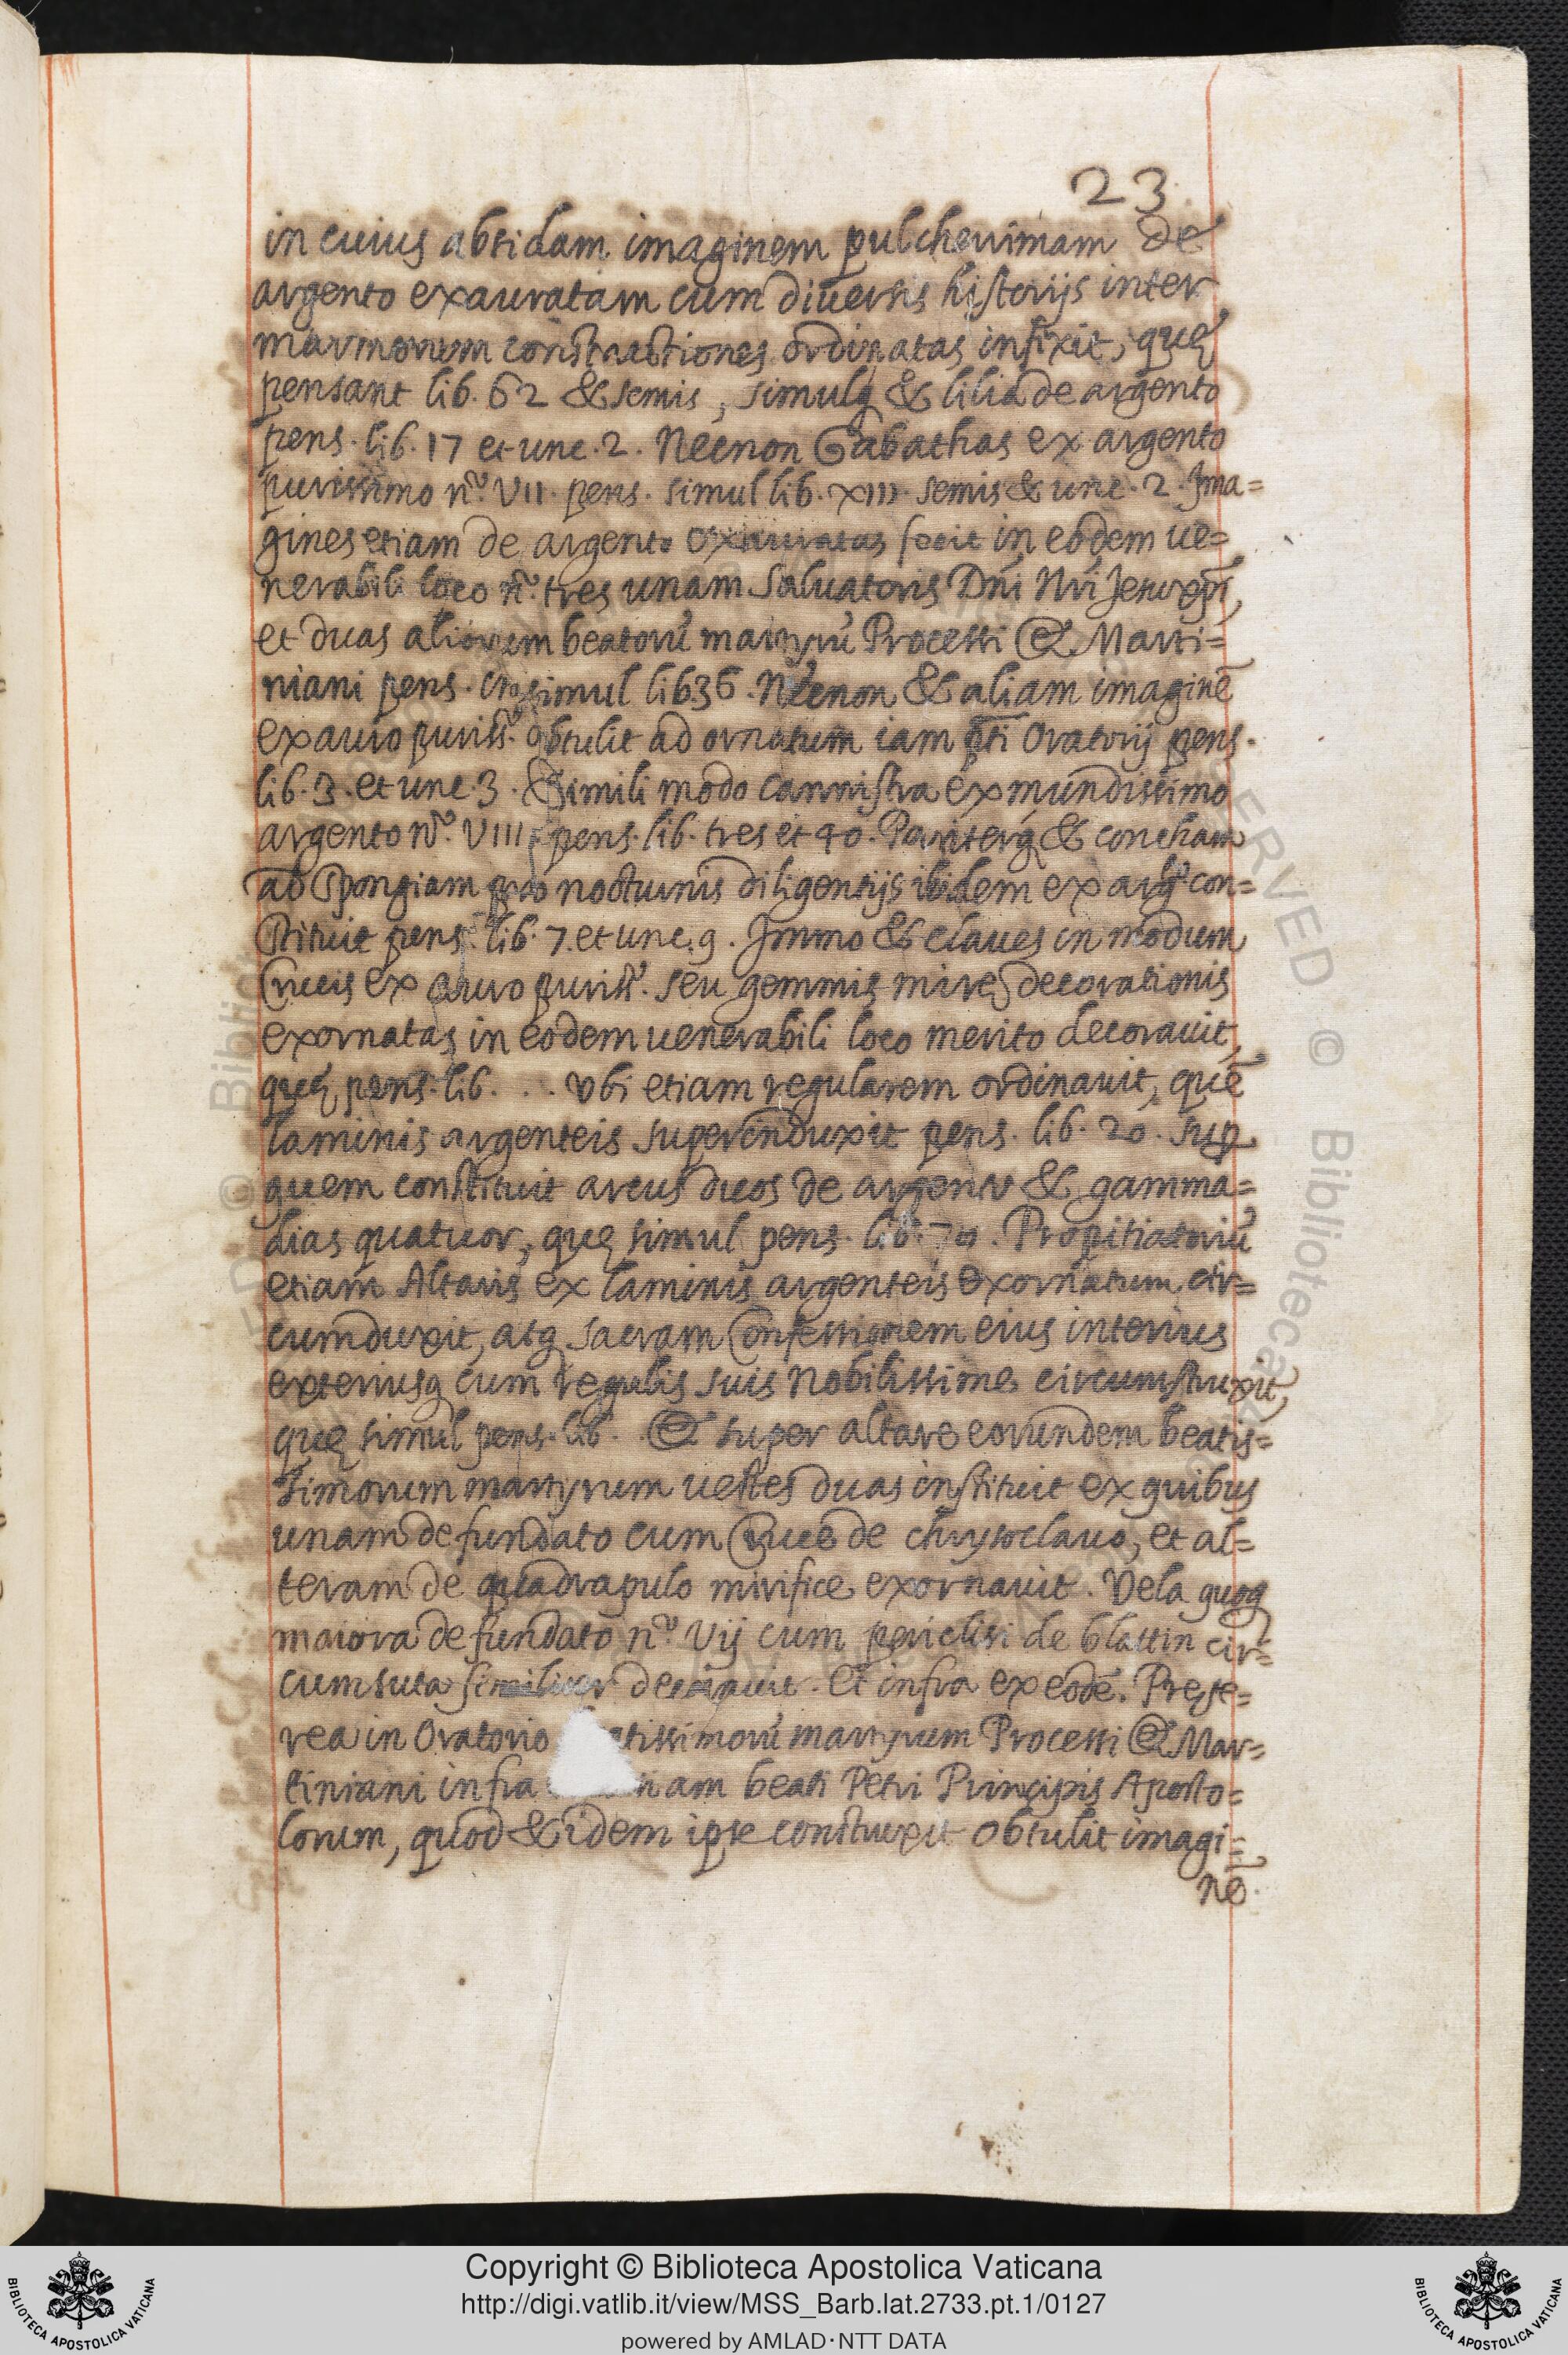 23
in cuius absidam imaginem pulcherrimam de
argento exauratam cum diuersis historijs inter
marmorum constructiones ordinatas infixit, quę
pensant lib. 62 & semis, simulq & lilia de argento
pens. lib. 17 et unc. 2. Necnon Gabathas ex argento
purissimo n.º VII. pens. simul lib. XIII. semis & unc. 2. Ima=
gines etiam de argento exauratas fecit in eodem ue=
nerabili loco n.º tres unam Saluatoris Dñi Nri Jesu xpi,
et duas aliorum beatorū martyrū Processi & Marti=
niani pens. simul lib 36. Necnon & aliam imaginē
ex auro puriss.º obtulit ad ornatum iam pti Oratorij pens.
lib. 3. et unc. 3. & simili modo cannistra ex mundissimo
argento n.º VIII pens. lib. tres et 40. Pariterq & concham
ab spongiam pro nocturnis diligentijs ibidem ex argº con=
stituit pens. lib. 7. et unc. 9. Immo & claues in modum
Crucis ex auro puriss.º seu gemmis mirę decorationis
exornatas in eodem uenerabili loco merito decorauit,
quę pens. lib. . . Vbi etiam regularem ordinauit, quē
laminis argenteis superinduxit pens. lib. 20. sup
quem constituit arcus duos de argento & gamma=
dias quatuor, quę simul pens. lib. 70. Propitiatoriū
etiam Altaris ex laminis argenteis exornatum cir=
cumduxit, atq sacram Confessionem eius interius
exteriusq cum regulis suis nobilissime circumstruxit,
quę simul pens. lib. . & super altare eorundem beatis=
simorum martyrum uestes duas instituit ex quibus
unam de fundato cum Cruce de chrysoclauo, et al=
teram de quadrapulo mirifice exornauit. Vela quoq
maiora de fundato n.º Vij cum periclisi de blattin cir=
cumsuta similiter decorauit. Et infra ex eodē. Pręte=
rea in Oratorio tissimorū martyrum Processi & Mar=
tiniani infra beati Petri Principis Aposto=
lorum, quod & idem ipse construxit obtulit imagi=
nē
Copyright © Biblioteca Apostolica Vaticana
http://digi.vatlib.it/view/MSS_Barb.lat.2733.pt.1/0127
powered by AMLAD·NTT DATA
BIBLIOTECA APOSTOLICA VATICANA
BIBLIOTECA APOSTOLICA VATICANA